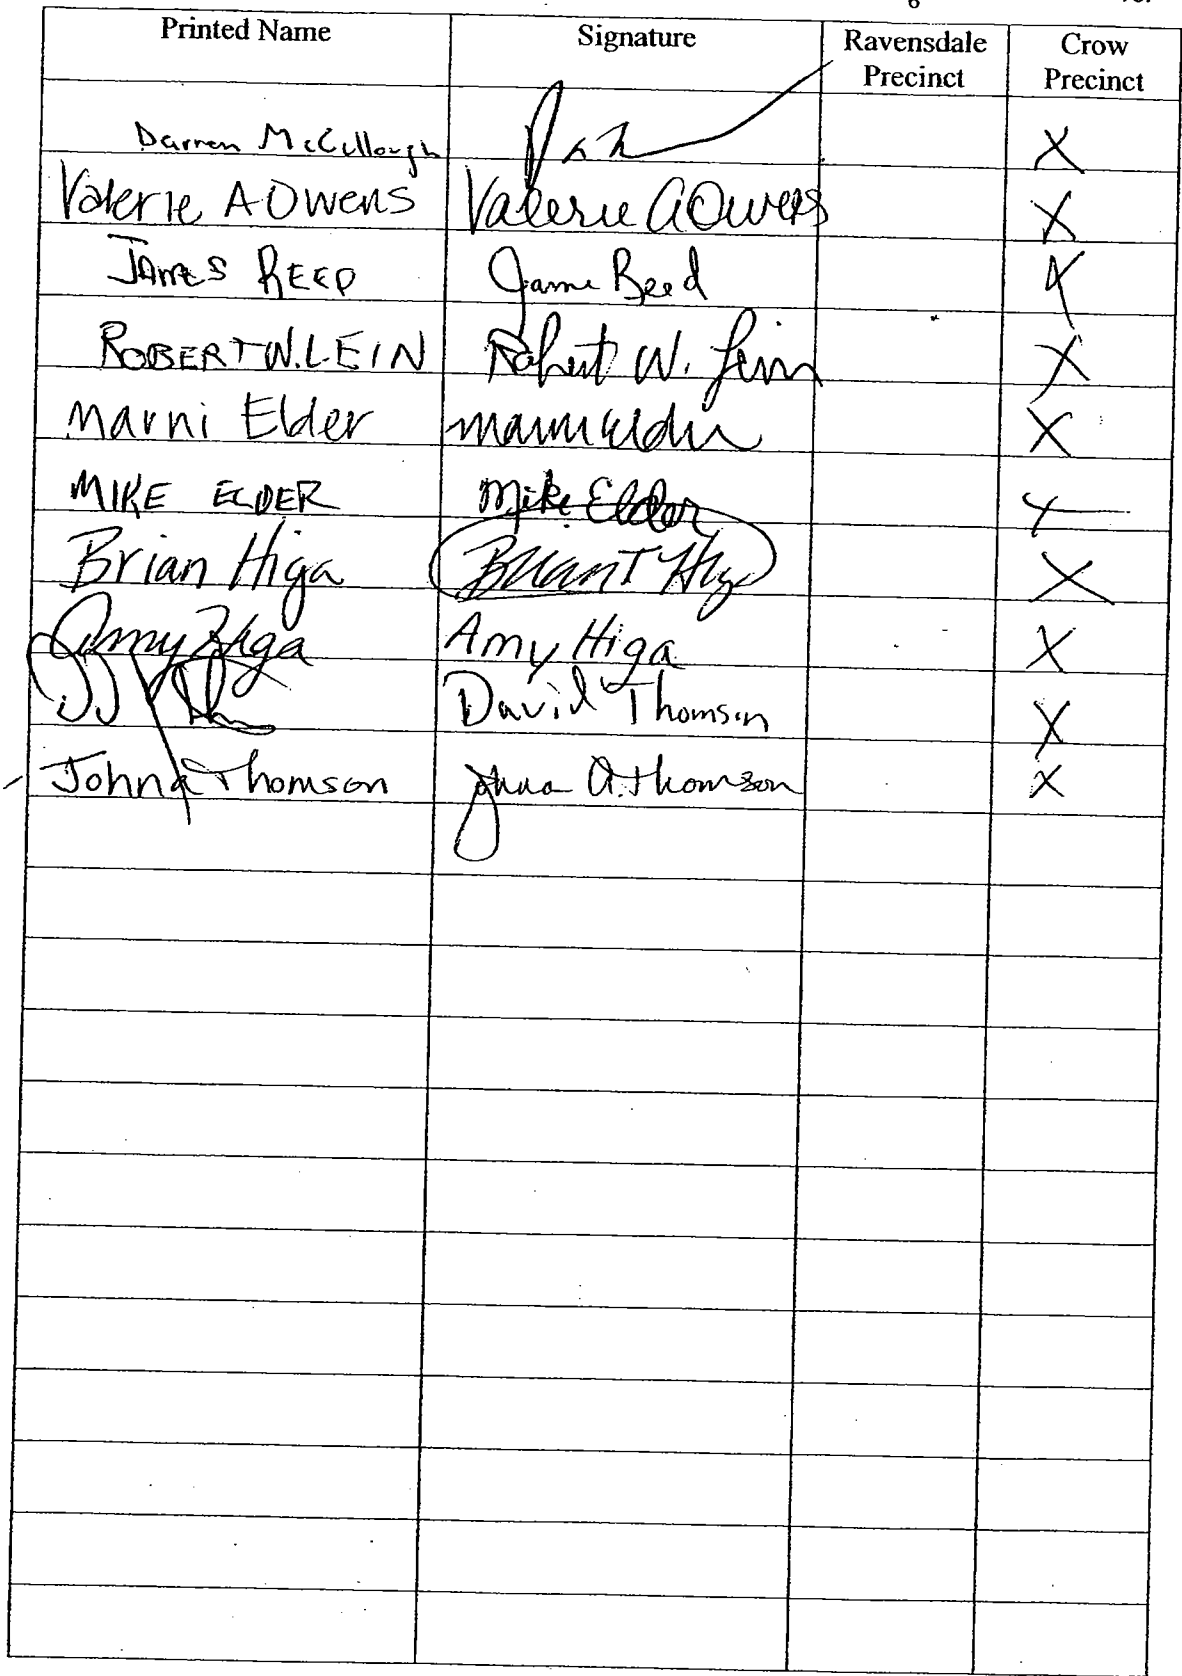 Printed Name Signature Ravensdale Precinct Crow Precinct
Darren McCullough X
Valerie A Owens Valerie A Owens X
JAMES REED James Reed X
ROBERT W. LEIN Robert W. Lein X
Marni Elder Marni Elder X
MIKE ELDER Mike Elder X
Brian Higa Brian T Higa X
Amy Higa Amy Higa X
David Thomson X
Johna Thomson Johna A. Thomson X